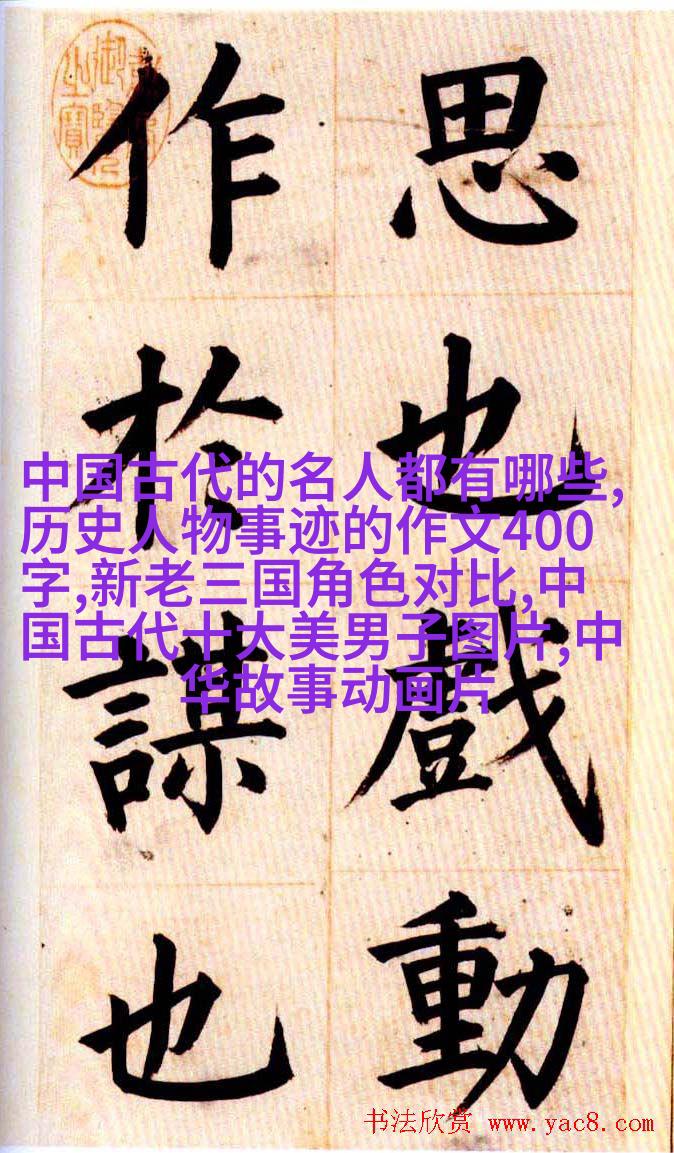 思也戲動
作於謀也
中国古代的名人都有哪些,
历史人物事迹的作文400
字,新老三国角色对比,中
国古代十大美男子图片,中
华故事动画片
书法欣赏 www.yac8.com